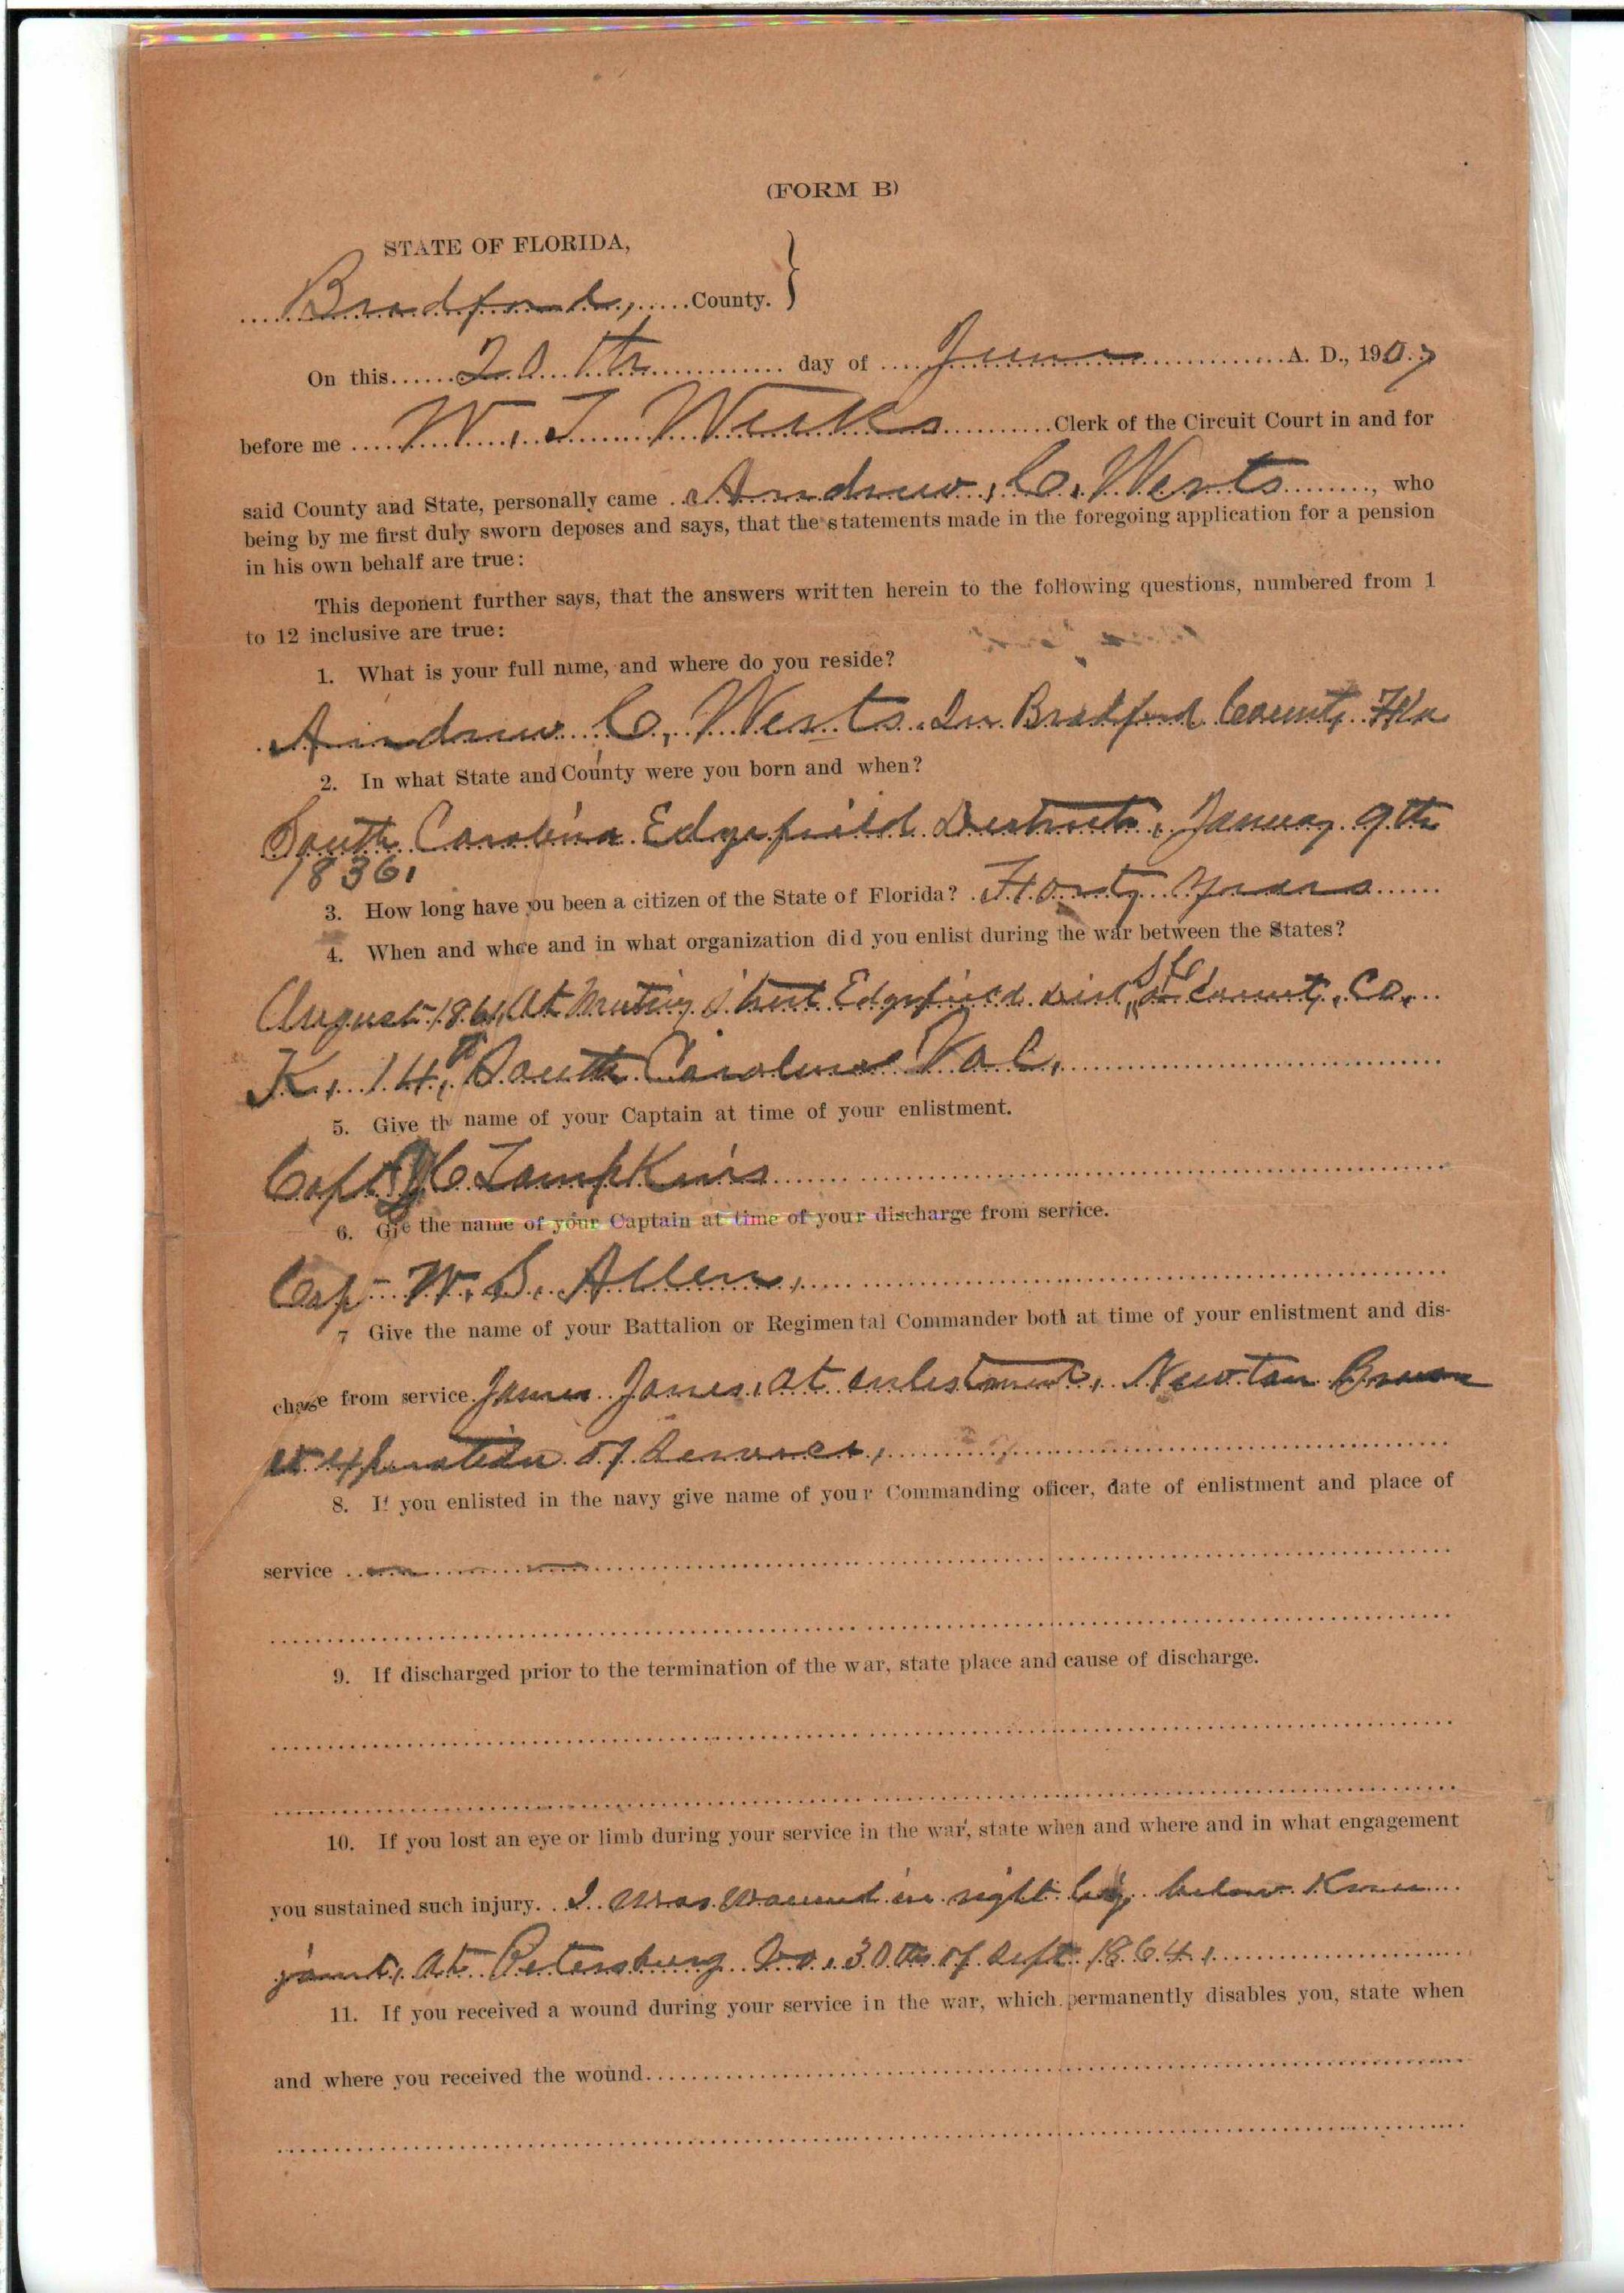 (FORM B)
STATE OF FLORIDA,
Bradford, County. }
On this 20th day of June A. D., 1907
before me W. T. Weeks Clerk of the Circuit Court in and for
said County and State, personally came Andrew, C. Werts, who
being by me first duly sworn deposes and says, that the statements made in the foregoing application for a pension
in his own behalf are true:
This deponent further says, that the answers written herein to the following questions, numbered from 1
to 12 inclusive are true:
1. What is your full name, and where do you reside?
Andrew C, Werts. In Bradford County Fla
2. In what State and County were you born and when?
South Carolina Edgefield District, January 9th
1836.
3. How long have you been a citizen of the State of Florida? Forty years
4. When and where and in what organization did you enlist during the war between the States?
August 1861, At Meeting Street Edgefield Dist, or County, Co.
K, 14th South Carolina Vol,
5. Give the name of your Captain at time of your enlistment.
Capt C Lampkins
6. Give the name of your Captain at time of your discharge from service.
Cap W. S. Allen,
7 Give the name of your Battalion or Regimental Commander both at time of your enlistment and dis-
chage from service. James Jones, at enlistment, Newton Brown
at expiration of Service,
8. If you enlisted in the navy give name of your Commanding officer, date of enlistment and place of
service
9. If discharged prior to the termination of the war, state place and cause of discharge.
10. If you lost an eye or limb during your service in the war, state when and where and in what engagement
you sustained such injury. I was wound in right leg below Knee
joint, at Petersburg Va, 30th of Sept 1864,
11. If you received a wound during your service in the war, which permanently disables you, state when
and where you received the wound